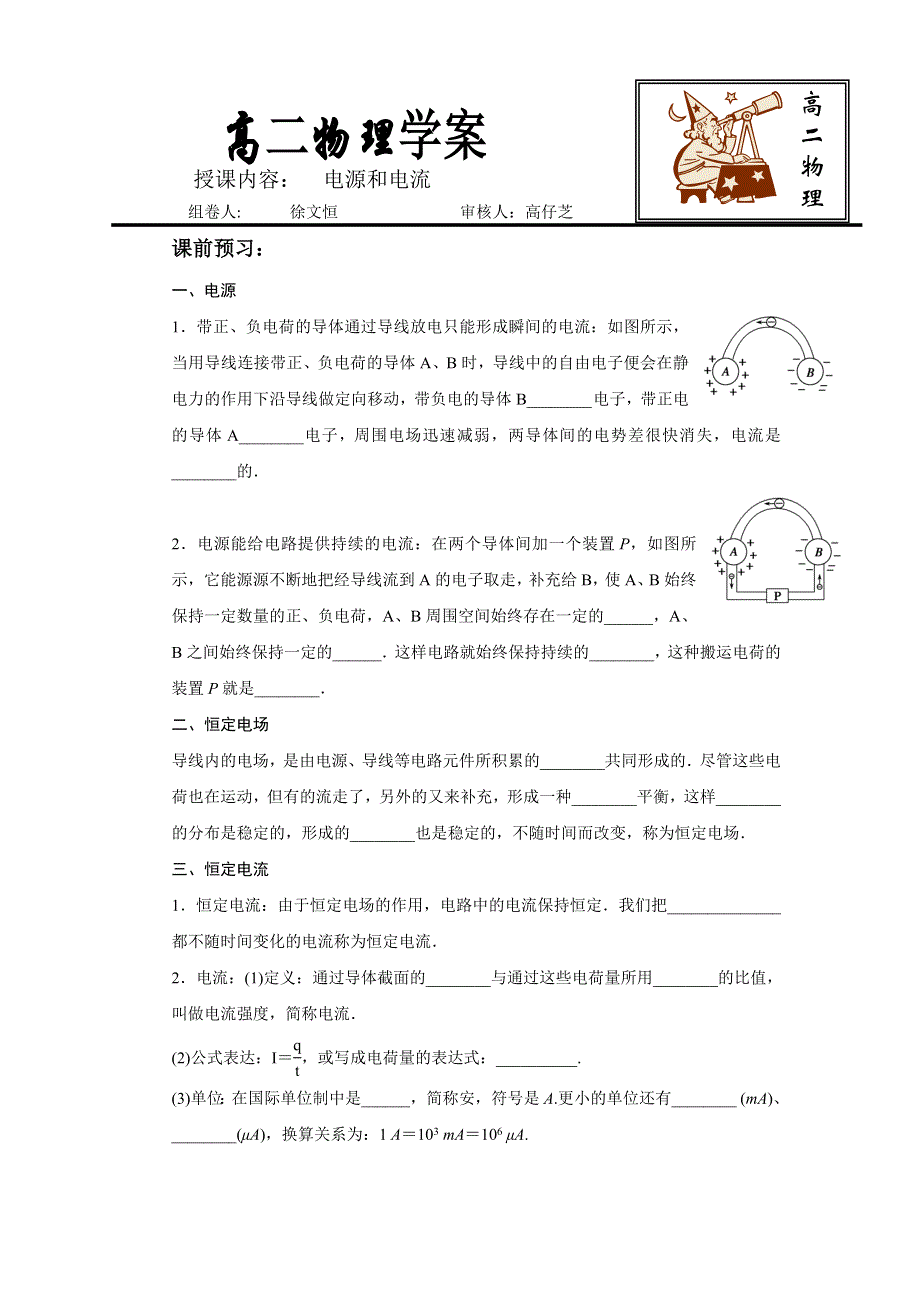 高二物理学案
高
二
物
理
授课内容： 电源和电流
组卷人: 徐文恒 审核人：高仔芝
课前预习：
一、电源
1．带正、负电荷的导体通过导线放电只能形成瞬间的电流：如图所示，
当用导线连接带正、负电荷的导体 A、B 时，导线中的自由电子便会在静
电力的作用下沿导线做定向移动，带负电的导体 B________电子，带正电
的导体 A________电子，周围电场迅速减弱，两导体间的电势差很快消失，电流是
________的．
A B
2．电源能给电路提供持续的电流：在两个导体间加一个装置 P，如图所
示，它能源源不断地把经导线流到 A 的电子取走，补充给 B，使 A、B 始终
保持一定数量的正、负电荷，A、B 周围空间始终存在一定的______，A、
B 之间始终保持一定的______．这样电路就始终保持持续的________，这种搬运电荷的
装置 P 就是________．
A B
P
二、恒定电场
导线内的电场，是由电源、导线等电路元件所积累的________共同形成的．尽管这些电
荷也在运动，但有的流走了，另外的又来补充，形成一种________平衡，这样________
的分布是稳定的，形成的________也是稳定的，不随时间而改变，称为恒定电场．
三、恒定电流
1．恒定电流：由于恒定电场的作用，电路中的电流保持恒定．我们把______________
都不随时间变化的电流称为恒定电流．
2．电流：(1)定义：通过导体截面的________与通过这些电荷量所用________的比值，
叫做电流强度，简称电流．
(2)公式表达：I＝q/t，或写成电荷量的表达式：__________.
(3)单位：在国际单位制中是______，简称安，符号是 A.更小的单位还有________ (mA)、
________(μA)，换算关系为：1 A＝10³ mA＝10⁶ μA.